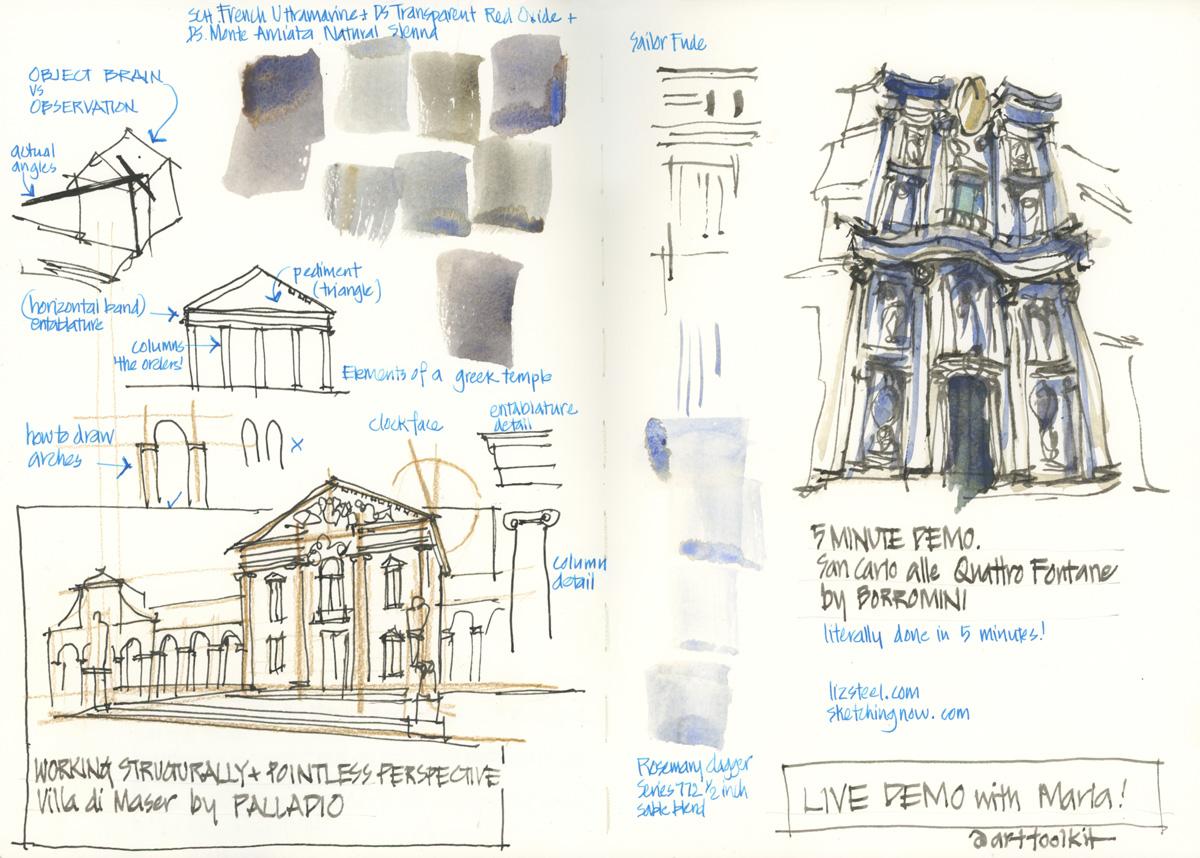 SCH French Ultramarine + DS Transparent Red Oxide +
DS. Monte Amiata Natural Sienna
OBJECT BRAIN
VS
OBSERVATION
actual
angles
pediment
(triangle)
(horizontal band)
entablature
columns
'the orders'
Elements of a greek temple
how to draw
arches
clock face
entablature
detail
column
detail
WORKING STRUCTURALLY + POINTLESS PERSPECTIVE
Villa di Maser by PALLADIO
Sailor Fude
Rosemary dagger
Series 772 1/2 inch
sable blend
5 MINUTE DEMO.
San Carlo alle Quattro Fontane
by BORROMINI
literally done in 5 minutes!
lizsteel.com
sketchingnow.com
LIVE DEMO with Maria!
@arttoolkit